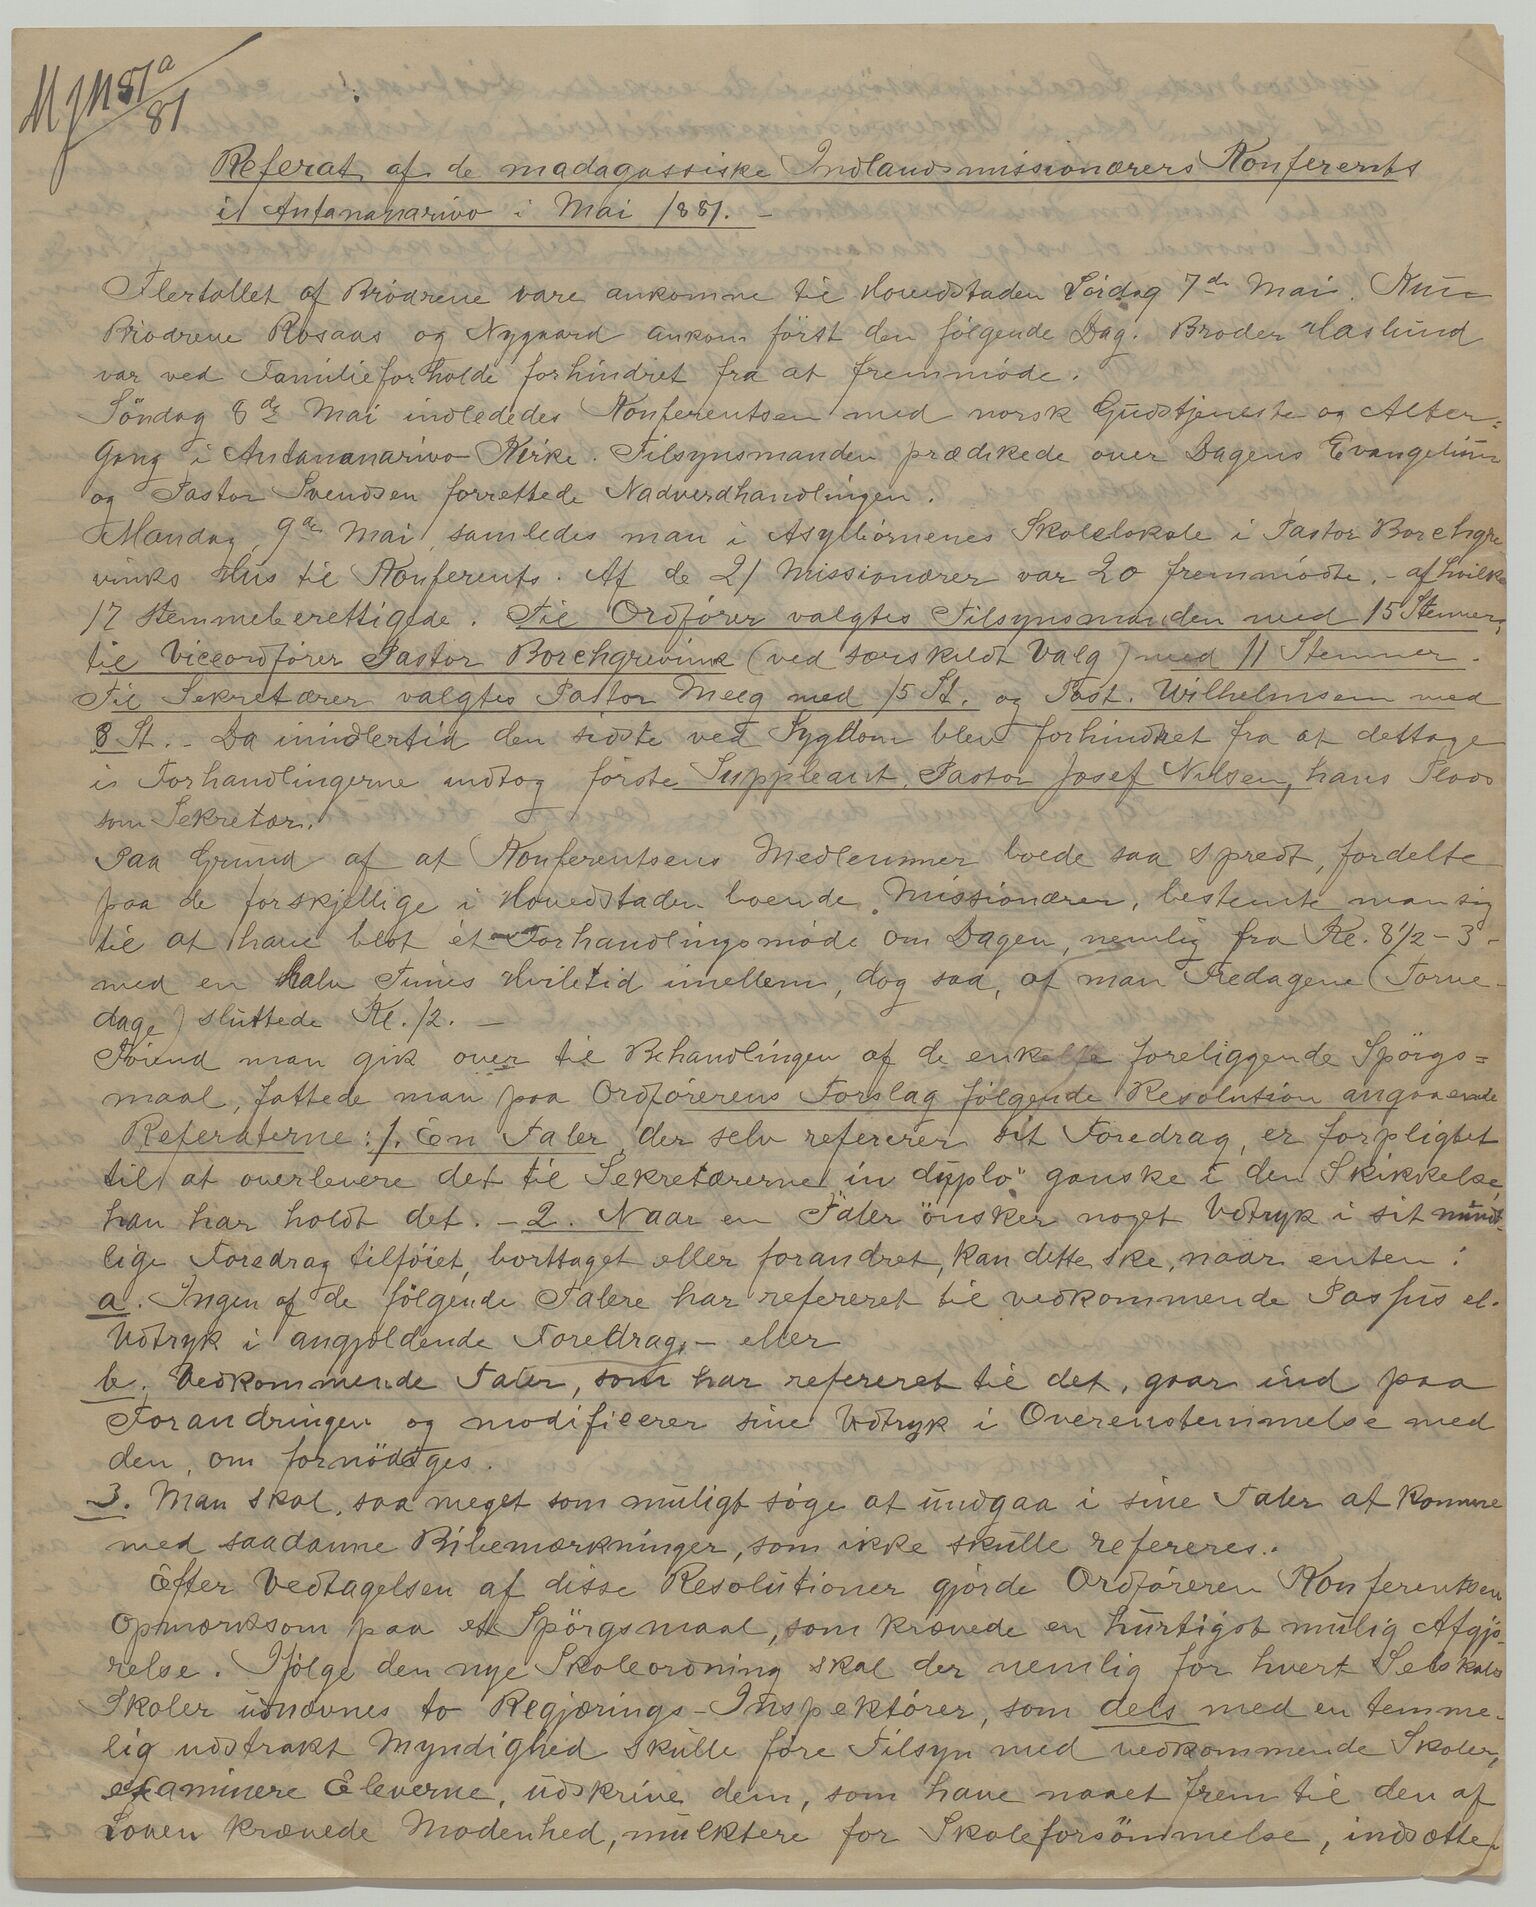 MJM 81a
81
Referat af de madagassiske Indlandsmissionærers Konferents
i Antananarivo i Mai 1881. –
Flertallet af Brødrene vare ankomne til Hovedstaden Lørdag 7de Mai. Kun
Brødrene Rosaas og Nygaard ankom først den følgende Dag. Broder Haslund
var ved Familieforholde forhindret fra at fremmøde.
Söndag 8de Mai indlededes Konferentsen med norsk Gudstjeneste og Alter-
gang i Antananarivo Kirke. Tilsynsmanden prædikede over Dagens Evangelium
og Pastor Svendsen forrettede Nadverdhandlingen.
Mandag 9de Mai samledes man i Asylbørnenes Skolelokale i Pastor Borchgre
vinks Hus til Konferents. Af de 21 Missionærer var 20 fremmødte, – af hvilke
17 stemmeberettigede. Til Ordfører valgtes Tilsynsmanden med 15 Stemmer,
til Viceordfører Pastor Borchgrevink (ved særskildt Valg) med 11 Stemmer.
Til Sekretærer valgtes Pastor Meeg med 15 St. og Past. Wilhelmsen med
8 St. – Da imidlertid den sidste ved Sygdom blev forhindret fra at deltage
i Forhandlingerne indtog første Suppleant, Pastor Josef Nilsen, hans Plads
som Sekretær.
Paa Grund af at Konferentsens Medlemmer boede saa spredt, fordelte
paa de forskjellige i Hovedstaden boende Missionærer, bestemte man sig
til at have blot ét Forhandlingsmøde om Dagen, nemlig fra Kl. 8½ – 3 –
med en halv Times Hviletid imellem, dog saa, at man Fredagene (Torve-
dage) sluttede Kl. 12. –
Förend man gik over til Behandlingen af de enkelte foreliggende Spörgs=
maal, fattede man paa Ordförerens Forslag følgende Resolution angaaende
Referaterne: 1. En Taler, der selv refererer sit Foredrag, er forpligtet
til at overlevere det til Sekretærerne "in duplo" ganske i den Skikkelse,
han har holdt det. – 2. Naar en Taler ønsker noget Udtryk i sit mundt-
lige Foredrag tilføiet, borttaget eller forandret, kan dette ske, naar enten:
a. Ingen af de fölgende Talere har refereret til vedkommende Passus el.
Udtryk i angjældende Foredrag, – eller
b. Vedkommende Taler, som har refereret til det, gaar ind paa
Forandringen og modificerer sine Udtryk i Overenstemmelse med
den, om fornødiges.
3. Man skal, saa meget som muligt søge at undgaa i sine Taler at komme
med saadanne Bibemærkninger, som ikke skulle refereres.
Efter Vedtagelsen af disse Resolutioner gjorde Ordføreren Konferentsen
opmærksom paa et Spörgsmaal, som krævede en hurtigst mulig Afgjö-
relse. Ifølge den nye Skoleordning skal der nemlig for hvert Selskabs
Skoler udnævnes to Regjærings-Inspektører, som dels med en temme-
lig udstrakt Myndighed skulle føre Tilsyn med vedkommende Skoler,
examinere Eleverne, udskrive dem, som have naaet frem til den af
Loven krævede Modenhed, mulktere for Skoleforsömmelse, indsætte